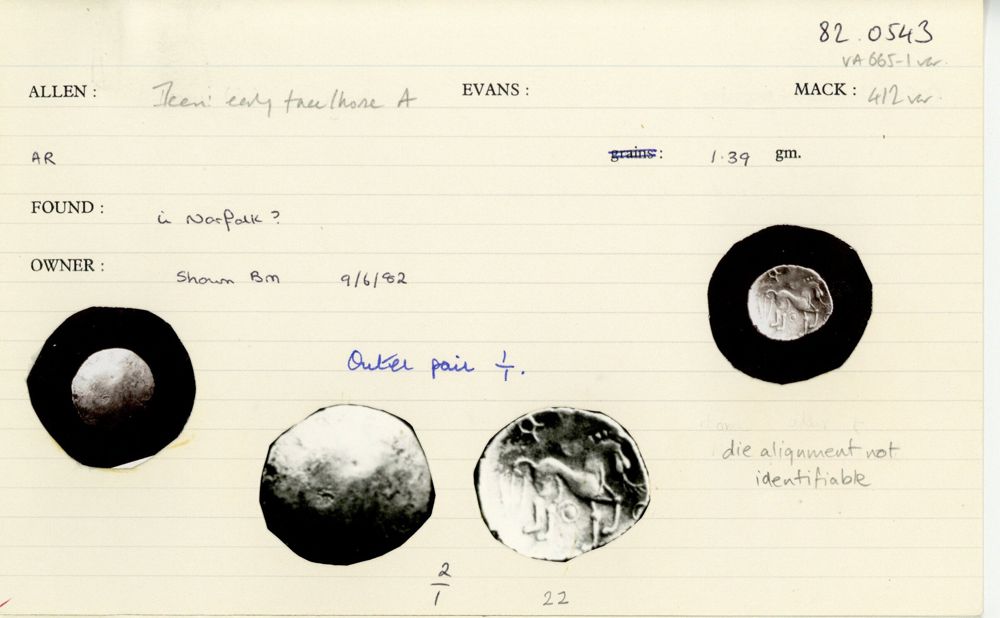 82.0543
VA 665-1 var.
ALLEN : Iceni early face/horse A EVANS : MACK : 412 var.
AR grains : 1.39 gm.
FOUND : in Norfolk ?
OWNER : Shown BM 9/6/82
Outer pair 1/1.
die alignment not
identifiable
2/1 22